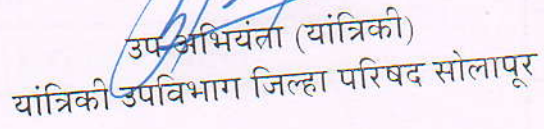 उप अभियंता (यांत्रिकी)
यांत्रिकी उपविभाग जिल्हा परिषद सोलापूर